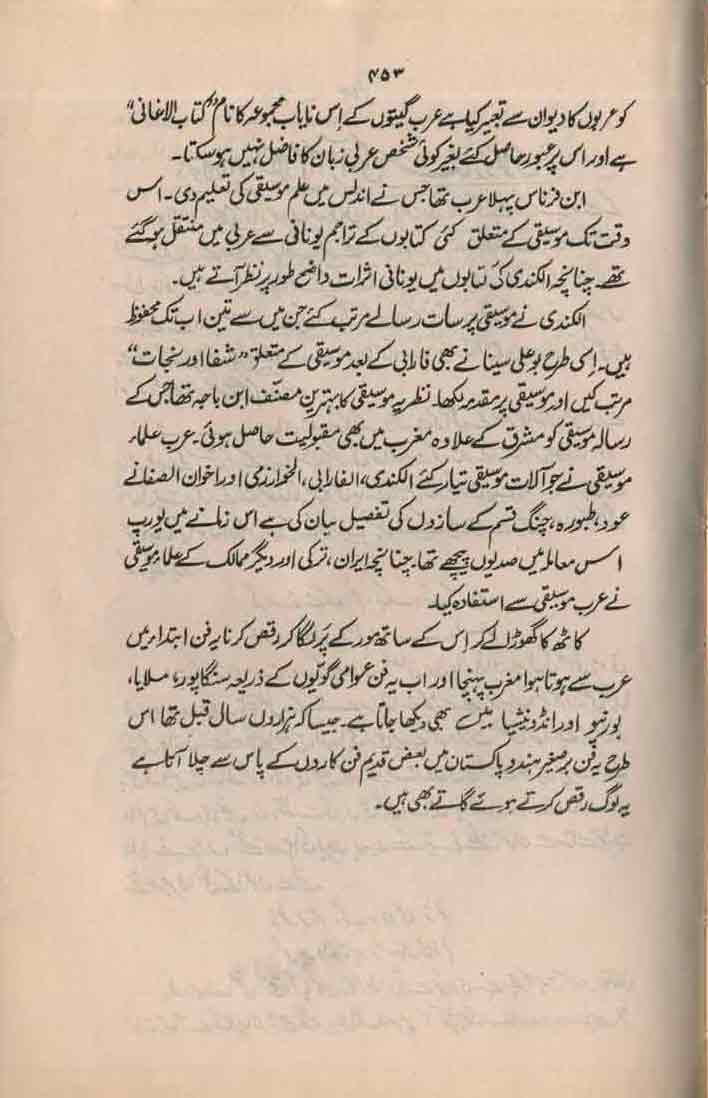 ۴۵۳
کو عربوں کا دیوان سے تعبیر کیا ہے عرب گیتوں کے اِس نایاب مجموعہ کا نام ”کتاب الاغانی“
ہے اور اس پر عبور حاصل کئے بغیر کوئی شخص عربی زبان کا فاضل نہیں ہو سکتا۔
ابن فرناس پہلا عرب تھا جس نے اندلس میں علم موسیقی کی تعلیم دی۔ اس
وقت تک موسیقی کے متعلق کئی کتابوں کے تراجم یونانی سے عربی میں منتقل ہو گئے
تھے۔ چنانچہ الکندی کی کتابوں میں یونانی اثرات واضح طور پر نظر آتے ہیں۔
الکندی نے موسیقی پر سات رسالے مرتب کئے جن میں سے تین اب تک محفوظ
ہیں۔ اِسی طرح بو علی سینا نے بھی فارابی کے بعد موسیقی کے متعلق ”شفا اور نجات“
مرتب کیں اور موسیقی پر مقدمہ لکھا۔ نظریہ موسیقی کا بہترین مصنّف ابن باجہ تھا جس کے
رسالہ موسیقی کو مشرق کے علاوہ مغرب میں بھی مقبولیت حاصل ہوئی۔ عرب علماء
موسیقی نے جو آلات موسیقی تیار کئے الکندی، الفارابی، الخوارزمی اور اخوان الصفا نے
عود، طبورہ، چنگ قسم کے سازوں کی تفصیل بیان کی ہے اس زمانے میں یورپ
اس معاملہ میں صدیوں پیچھے تھا۔ چنانچہ ایران، ترکی اور دیگر ممالک کے علماء موسیقی
نے عرب موسیقی سے استفادہ کیا۔
کاٹھ کا گھوڑا لے کر اِس کے ساتھ مور کے پَر لگا کر رقص کرنا یہ فن ابتداء میں
عرب سے ہوتا ہوا مغرب پہنچا اور اب یہ فن عوامی گویّوں کے ذریعہ سنگاپور، ملایا،
بورنیو اور انڈونیشیا میں بھی دیکھا جاتا ہے۔ جیسا کہ ہزاروں سال قبل تھا اس
طرح یہ فن برصغیر ہندو پاکستان میں بعض قدیم فن کاروں کے پاس سے چلا آتا ہے
یہ لوگ رقص کرتے ہوئے گاتے بھی ہیں۔